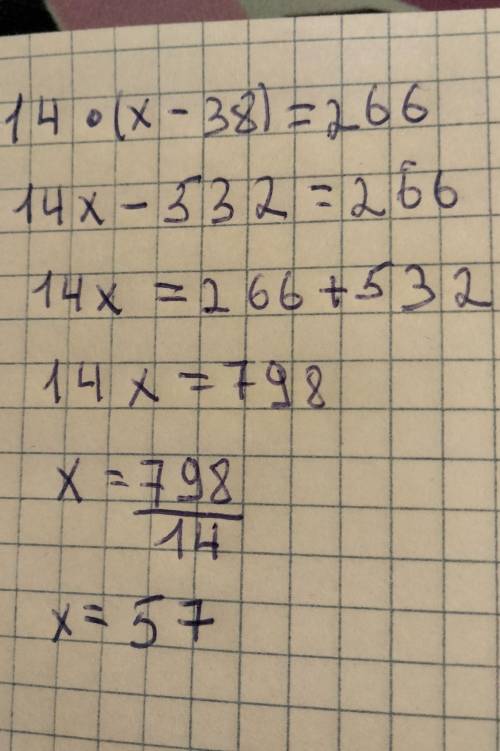 14 • (x - 38) = 266
14x - 532 = 266
14x = 266 + 532
14x = 798
x = 798/14
x = 57